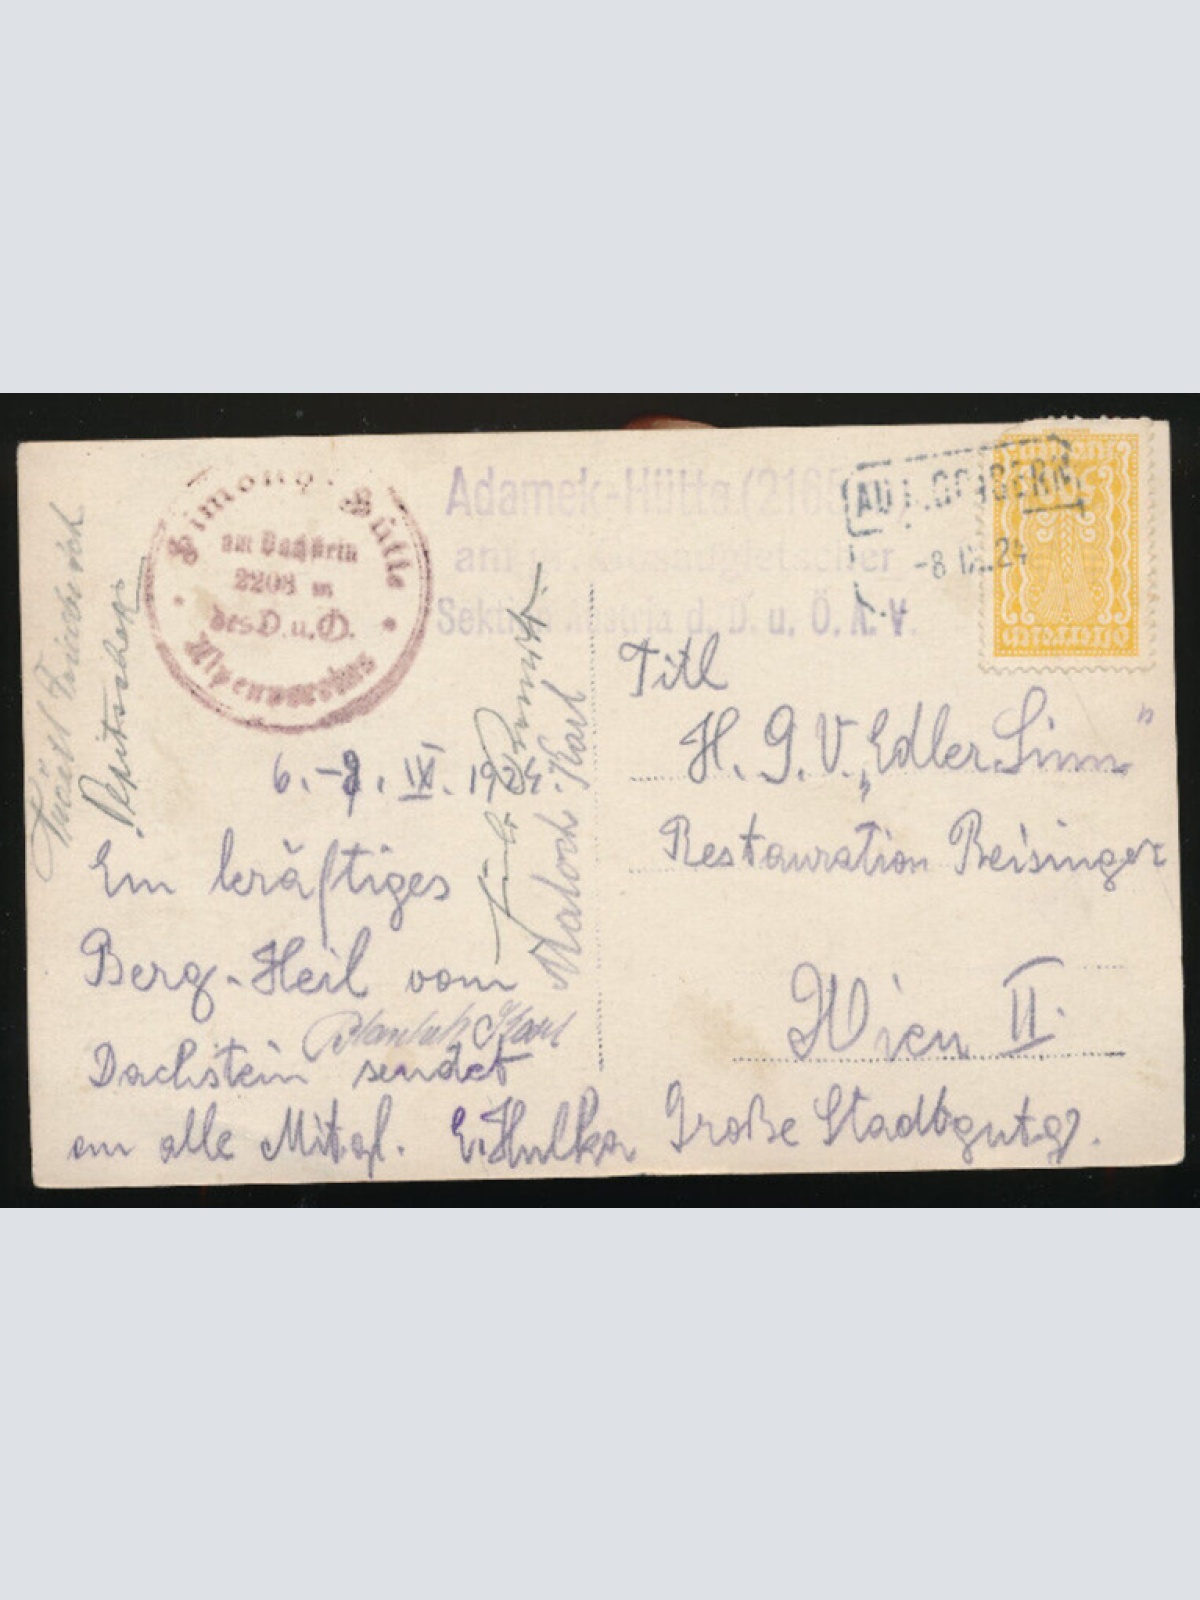 Simony-Hütte
am Dachstein
2208 m
des D. u. Ö.
Alpenvereins
Adamek-Hütte (2165
Sektion Austria d. D. u. Ö. A. V.
GOISERN
-8 IX.24
6.-8. IX. 1924
Ein kräftiges
Berg-Heil vom
Dachstein sendet
an alle Mitgl. E. Hulka
Karl
Karl
Titl
H. G. V. „Edler Sinn"
Restauration Reisinger
Wien II.
Große Stadtgutg.